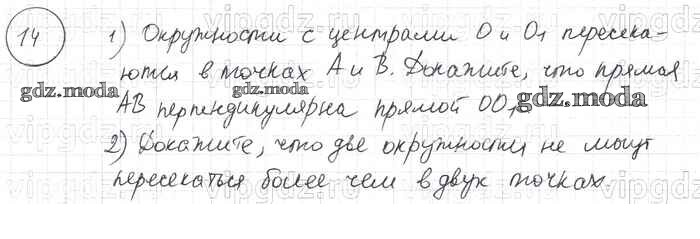 14
1) Окружности с центрами O и O₁ пересека-
ются в точках A и B. Докажите, что прямая
AB перпендикулярна прямой OO₁.
2) Докажите, что две окружности не могут
пересекаться более чем в двух точках.
gdz.moda
gdz.moda
gdz.moda
vipgdz.ru